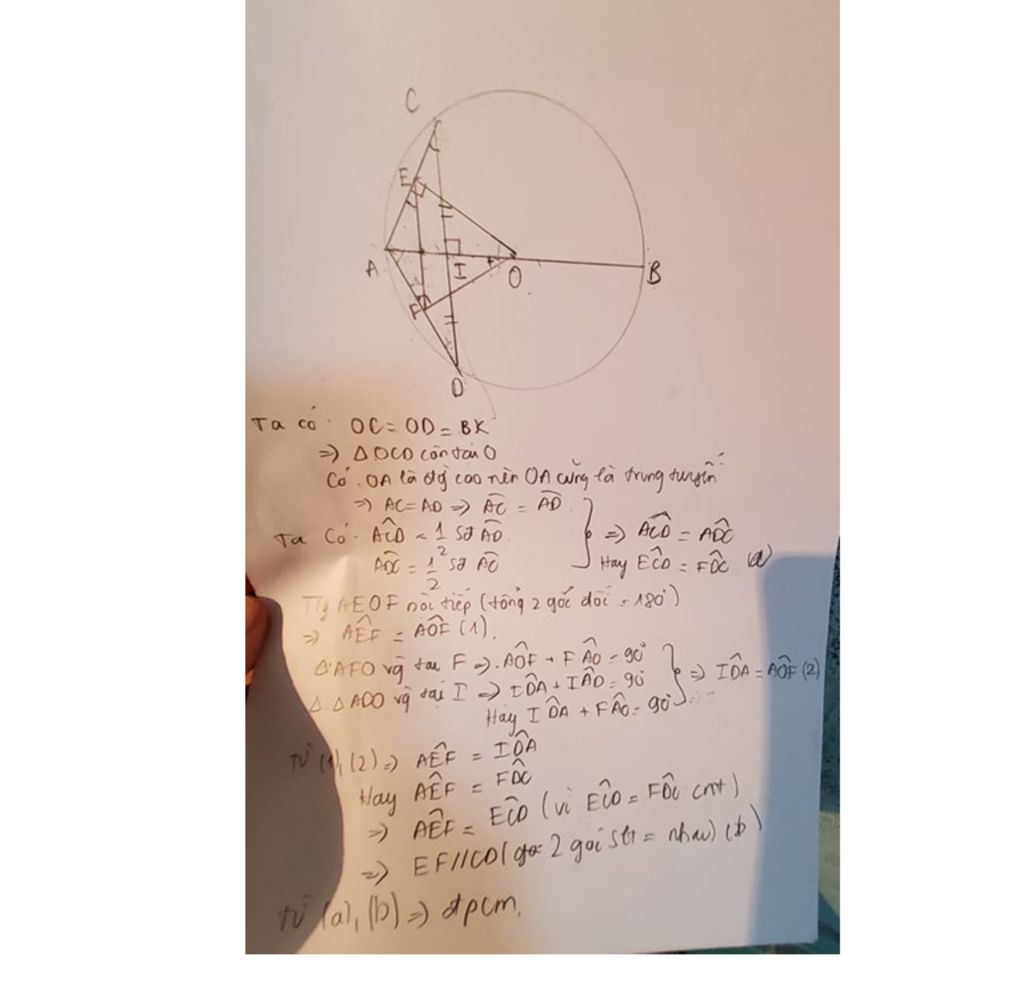 C
E
A
I
O
B
F
D
Ta có: OC = OD = BK
=> ΔOCD cân tại O
Có OA là đg cao nên OA cũng là trung tuyến
=> AC = AD => AC = AD
Ta Có: ACD = 1/2 sđ AD
ADC = 1/2 sđ AC
=> ACD = ADC
Hay ECD = FDC (a)
Tg AEOF nội tiếp (tổng 2 góc đối = 180°)
=> AEF = AOF (1).
ΔAFO vg tại F => AOF + FAO = 90°
Δ ΔADO vg tại I => IDA + IAD = 90°
Hay IDA + FAO = 90°
=> IDA = AOF (2)
Từ (1), (2) => AEF = IDA
Hay AEF = FDC
=> AEF = ECD (vì ECD = FDC cmt)
=> EF // CD ( 2 góc slt = nhau) (b)
Từ (a), (b) => đpcm.